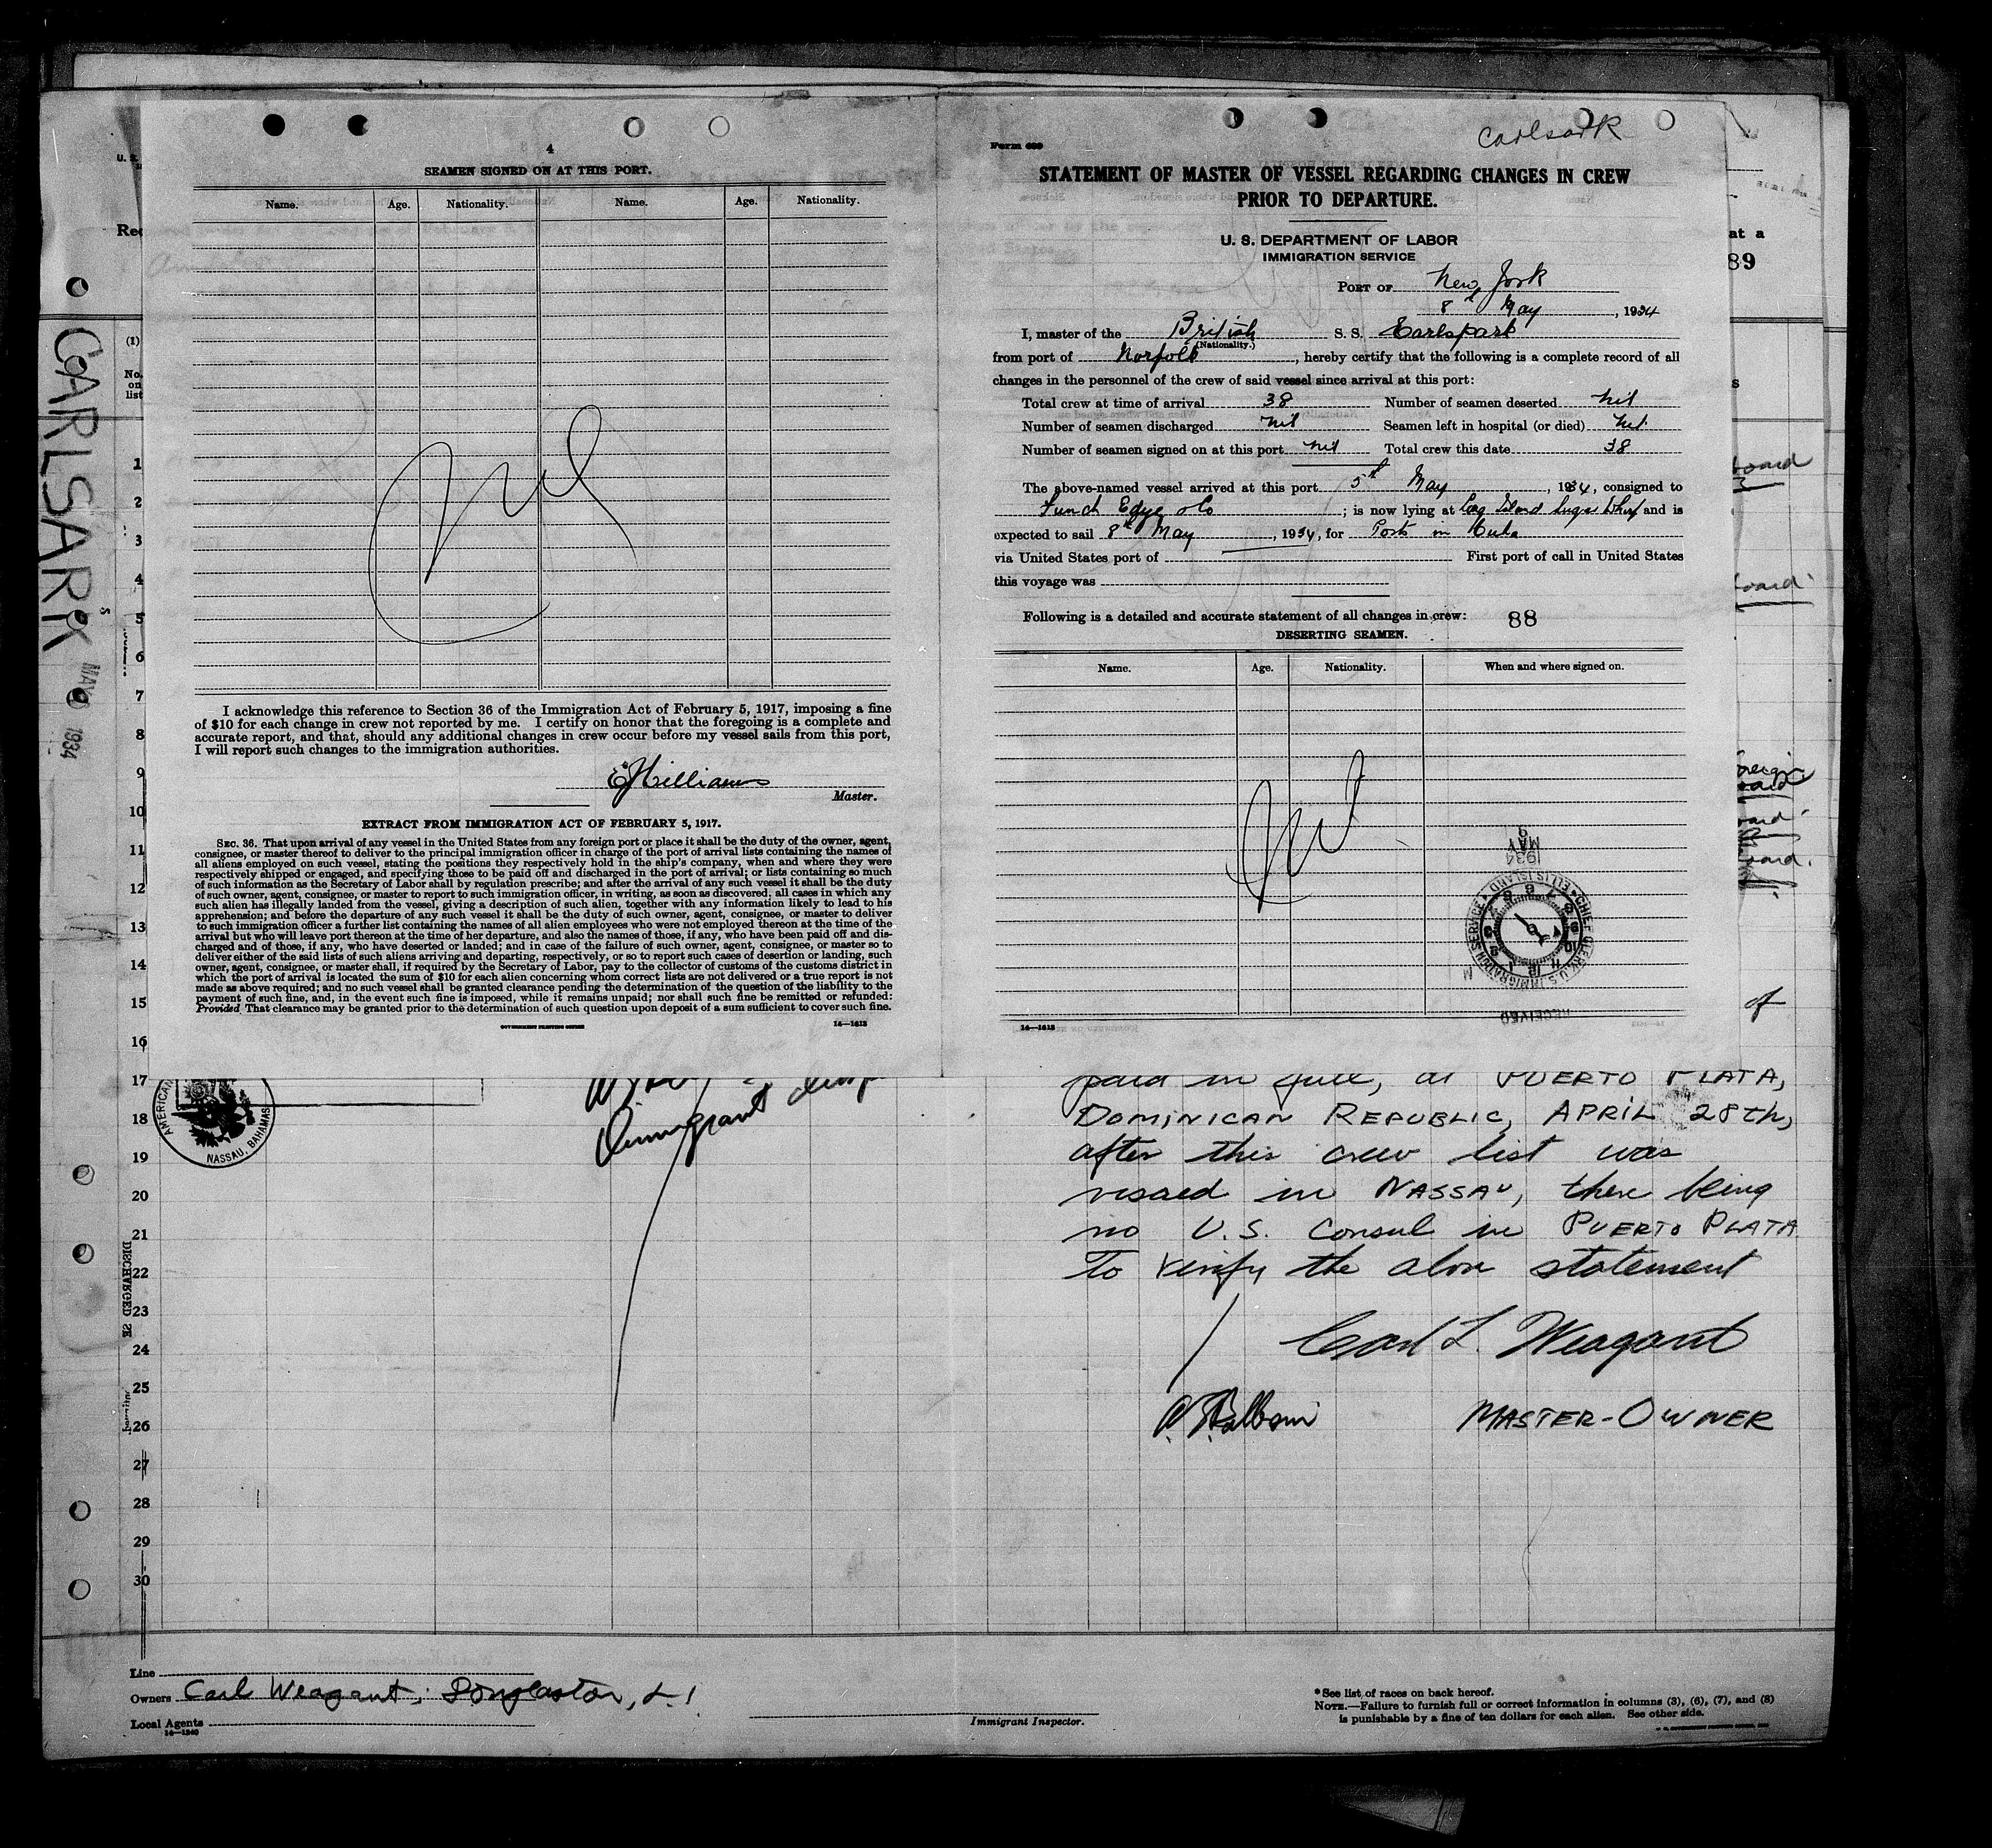 4
SEAMEN SIGNED ON AT THIS PORT.
Name. Age. Nationality. Name. Age. Nationality.
Nil
I acknowledge this reference to Section 36 of the Immigration Act of February 5, 1917, imposing a fine
of $10 for each change in crew not reported by me. I certify on honor that the foregoing is a complete and
accurate report, and that, should any additional changes in crew occur before my vessel sails from this port,
I will report such changes to the immigration authorities.
Williams
Master.
EXTRACT FROM IMMIGRATION ACT OF FEBRUARY 5, 1917.
SEC. 36. That upon arrival of any vessel in the United States from any foreign port or place it shall be the duty of the owner, agent,
consignee, or master thereof to deliver to the principal immigration officer in charge of the port of arrival lists containing the names of
all aliens employed on such vessel, stating the positions they respectively hold in the ship's company, when and where they were
respectively shipped or engaged, and specifying those to be paid off and discharged in the port of arrival; or lists containing so much
of such information as the Secretary of Labor shall by regulation prescribe; and after the arrival of any such vessel it shall be the duty
of such owner, agent, consignee, or master to report to such immigration officer, in writing, as soon as discovered, all cases in which any
such alien has illegally landed from the vessel, giving a description of such alien, together with any information likely to lead to his
apprehension; and before the departure of any such vessel it shall be the duty of such owner, agent, consignee, or master to deliver
to such immigration officer a further list containing the names of all alien employees who were not employed thereon at the time of the
arrival but who will leave port thereon at the time of her departure, and also the names of those, if any, who have been paid off and dis-
charged and of those, if any, who have deserted or landed; and in case of the failure of such owner, agent, consignee, or master so to
deliver either of the said lists of such aliens arriving and departing, respectively, or so to report such cases of desertion or landing, such
owner, agent, consignee, or master shall, if required by the Secretary of Labor, pay to the collector of customs of the customs district in
which the port of arrival is located the sum of $10 for each alien concerning whom correct lists are not delivered or a true report is not
made as above required; and no such vessel shall be granted clearance pending the determination of the question of the liability to the
payment of such fine, and, in the event such fine is imposed, while it remains unpaid; nor shall such fine be remitted or refunded:
Provided, That clearance may be granted prior to the determination of such question upon deposit of a sum sufficient to cover such fine.
GOVERNMENT PRINTING OFFICE 14—1613
Carlsark
Form 689
STATEMENT OF MASTER OF VESSEL REGARDING CHANGES IN CREW
PRIOR TO DEPARTURE.
U. S. DEPARTMENT OF LABOR
IMMIGRATION SERVICE
PORT OF New York
8th May, 1934
I, master of the British S. S. Earlspark
(Nationality.)
from port of Norfolk, hereby certify that the following is a complete record of all
changes in the personnel of the crew of said vessel since arrival at this port:
Total crew at time of arrival 38 Number of seamen deserted Nil
Number of seamen discharged Nil Seamen left in hospital (or died) Nil.
Number of seamen signed on at this port Nil Total crew this date 38
The above-named vessel arrived at this port 5th May, 1934, consigned to
Funch Edye & Co; is now lying at Long Island Sugar Whrf and is
expected to sail 8th May, 1934, for Ports in Cuba
via United States port of First port of call in United States
this voyage was
Following is a detailed and accurate statement of all changes in crew: 88
DESERTING SEAMEN.
Name. Age. Nationality. When and where signed on.
Nil
MAY 9
1934
CHIEF CLERK U.S. IMMIGRATION SERVICE ELLIS ISLAND
RECEIVED
14—1613
CARLSARK
MAY 1934
U. S.
Rec
(1)
No.
on
list
1
2
3
4
5
6
7
8
9
10
11
12
13
14
15
16
17
18
19
20
21
22
23
24
25
26
27
28
29
30
DISCHARGED SE
at a
89
s
board
board
foreign
board
of
AMERICAN
NASSAU, BAHAMAS
Immigrant Insp
paid in full, at PUERTO PLATA,
DOMINICAN REPUBLIC, APRIL 28th,
after this crew list was
visaed in NASSAU, there being
no U.S. Consul in PUERTO PLATA
To verify the above statement
Carl L. Weagant
MASTER-OWNER
Line
Owners Carl Weagant, Douglaston, L.I
Local Agents
14—1240
Immigrant Inspector.
*See list of races on back hereof.
NOTE.—Failure to furnish full or correct information in columns (3), (6), (7), and (8)
is punishable by a fine of ten dollars for each alien. See other side.